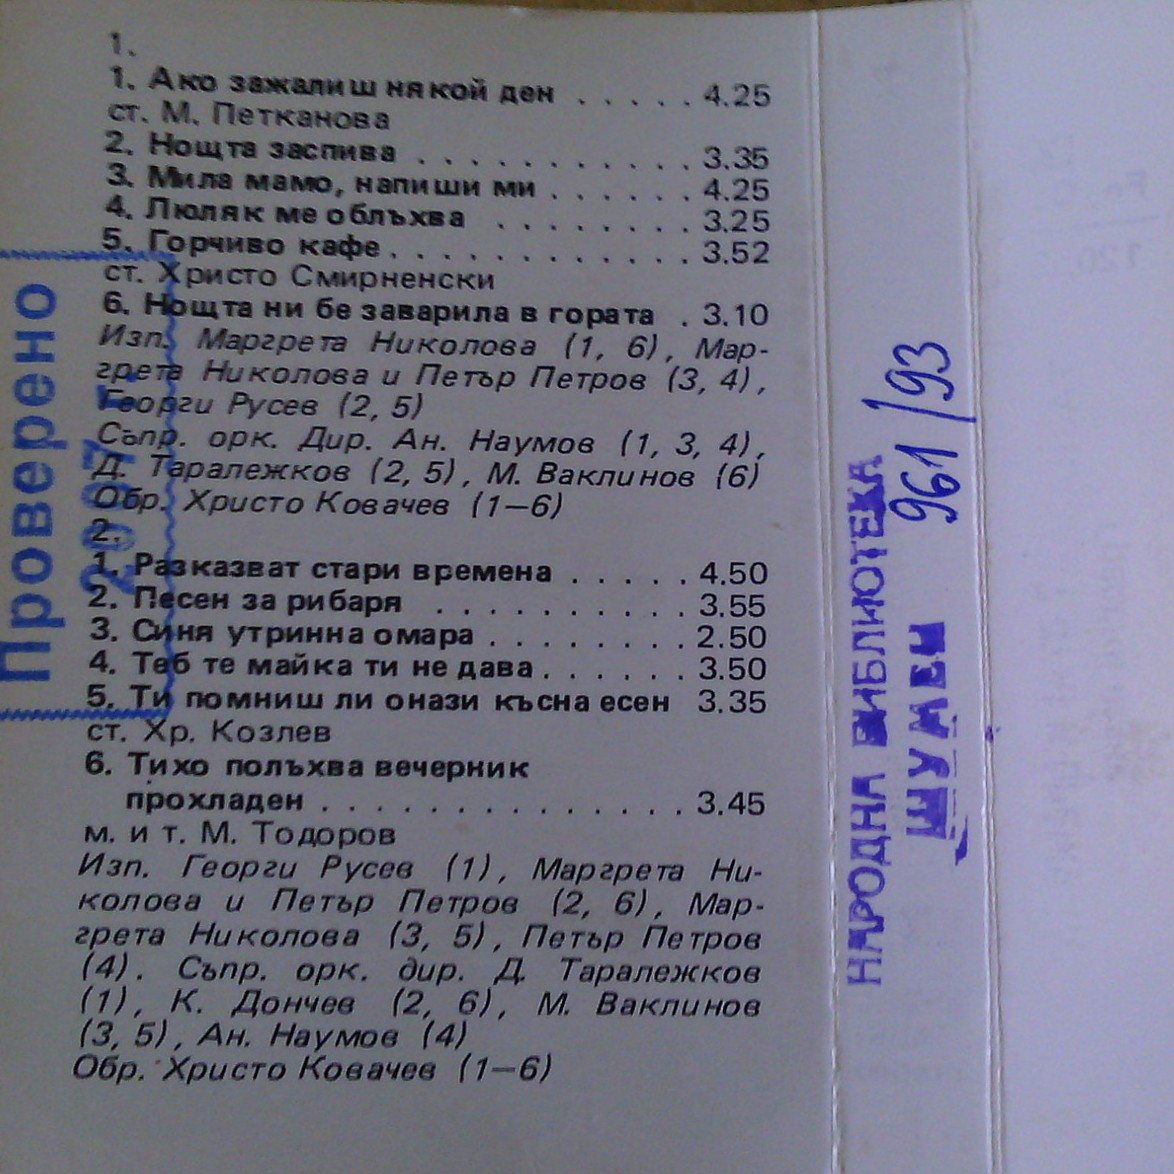 1.
1. Ако зажалиш някой ден . . . . . 4.25
ст. М. Петканова
2. Нощта заспива . . . . . . . . . . . 3.35
3. Мила мамо, напиши ми . . . . . . 4.25
4. Люляк ме облъхва . . . . . . . . 3.25
5. Горчиво кафе . . . . . . . . . . . . 3.52
ст. Христо Смирненски
6. Нощта ни бе заварила в гората . 3.10
Изп. Маргрета Николова (1, 6), Мар-
грета Николова и Петър Петров (3, 4),
Георги Русев (2, 5)
Съпр. орк. Дир. Ан. Наумов (1, 3, 4),
Д. Таралежков (2, 5), М. Ваклинов (6)
Обр. Христо Ковачев (1—6)
2.
1. Разказват стари времена . . . . . 4.50
2. Песен за рибаря . . . . . . . . . . 3.55
3. Синя утринна омара . . . . . . . . 2.50
4. Теб те майка ти не дава . . . . . . 3.50
5. Ти помниш ли онази късна есен 3.35
ст. Хр. Козлев
6. Тихо полъхва вечерник
прохладен . . . . . . . . . . . . . . 3.45
м. и т. М. Тодоров
Изп. Георги Русев (1), Маргрета Ни-
колова и Петър Петров (2, 6), Мар-
грета Николова (3, 5), Петър Петров
(4). Съпр. орк. дир. Д. Таралежков
(1), К. Дончев (2, 6), М. Ваклинов
(3, 5), Ан. Наумов (4)
Обр. Христо Ковачев (1—6)
Проверено
НАРОДНА БИБЛИОТЕКА
ШУМЕН
961/93